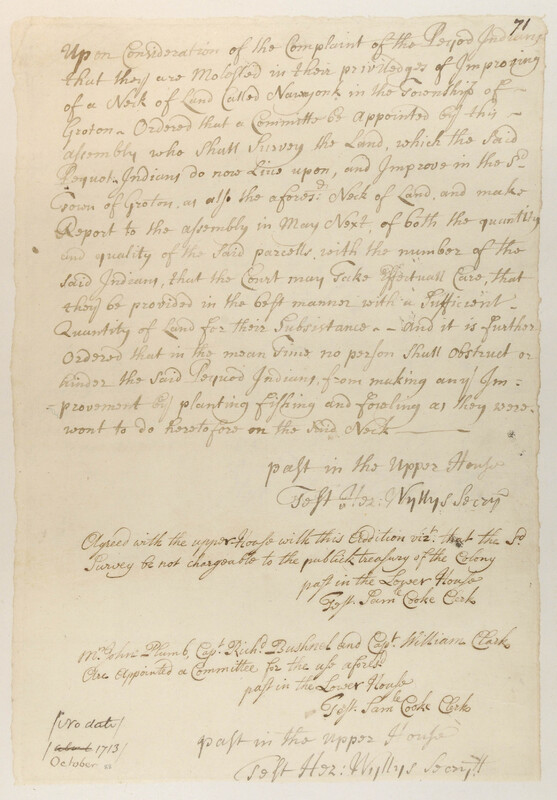 71
Upon Consideration of the Complaint of the Pequod Indians
that they are Molested in their priviledges of Improving
of a Neck of Land Called Nawayonk in the Township of
Groton. Ordered that a Committe be Appointed by this
assembly who Shall Survey the Land, which the Said
Pequot Indians do now Live upon, and Improve in the Sd
Town of Groton, as also the aforesd Neck of Land, and make
Report to the assembly in May Next, of both the quantity
and quality of the Said parcells, with the number of the
Said Indians, that the Court may Take Effectuall Care, that
they be provided in the best manner with a Sufficient
Quantity of Land for their Subsistance - And it is further
Ordered that in the mean Time no person Shall Obstruct or
hinder the Said Pequod Indians, from making any Im-
-provement by planting Fishing and fowling as they were
wont to do heretofore on the Said Neck
past in the Upper House
Test Hez: Wyllys Secry
Agreed with the upper House with this Addition vizt: that the Sd
Survey be not chargeable to the publick treasury of the Colony
past in the Lower House
Test. Samll Cooke Clerk
Mr John Plumb, Capt. Richd. Bushnel and Capt. William Clark
Are Appointed a Committee for the use aforesd
past in the Lower House
Test Samll Cooke Clerk
past in the Upper House
Test Hez: Wyllys Secrytt
[No date]
[about 1713]
October "